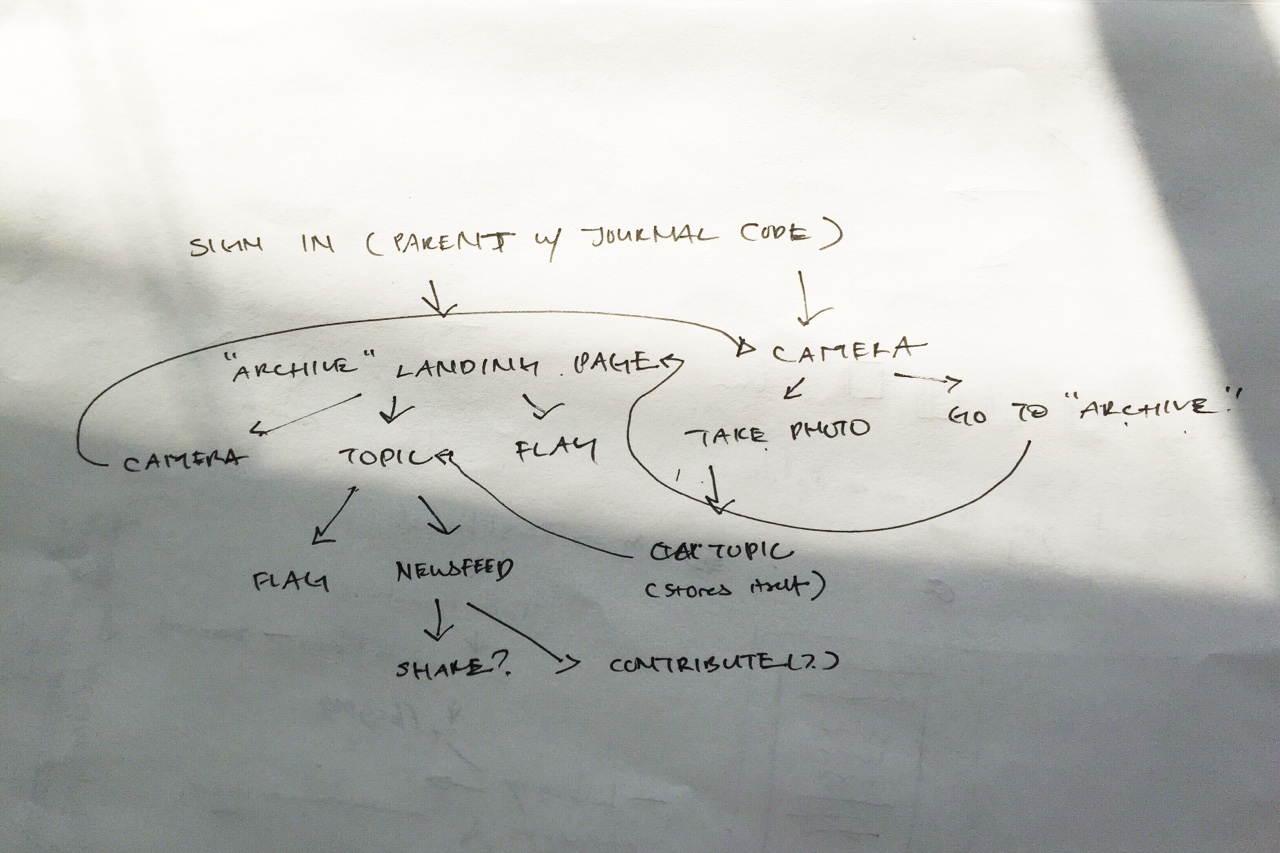 SIGN IN (PARENT W/ JOURNAL CODE)
"ARCHIVE" LANDING PAGE
CAMERA
GO TO "ARCHIVE"
TAKE PHOTO
CAMERA
TOPIC
FLAG
TOPIC
(stores itself)
FLAG
NEWSFEED
SHARE?
CONTRIBUTE(?)